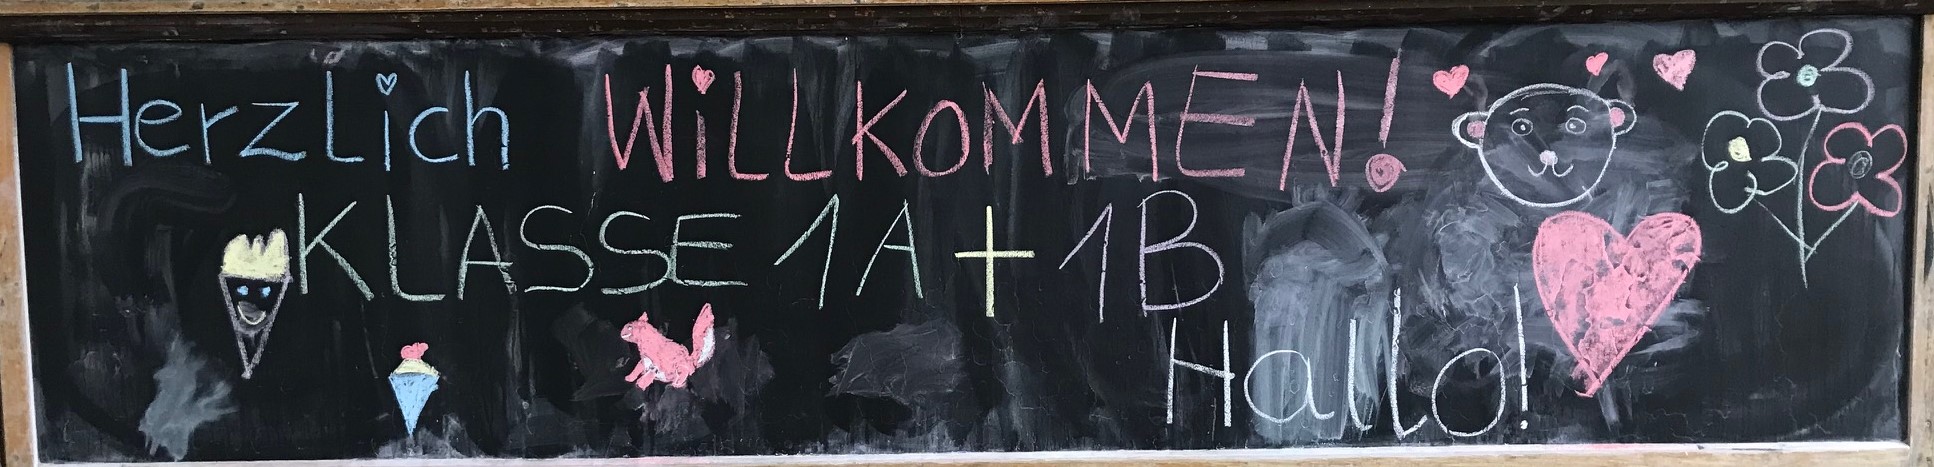 HerzLich WiLLKOMMEN!
KLASSE 1A + 1B
Hallo!